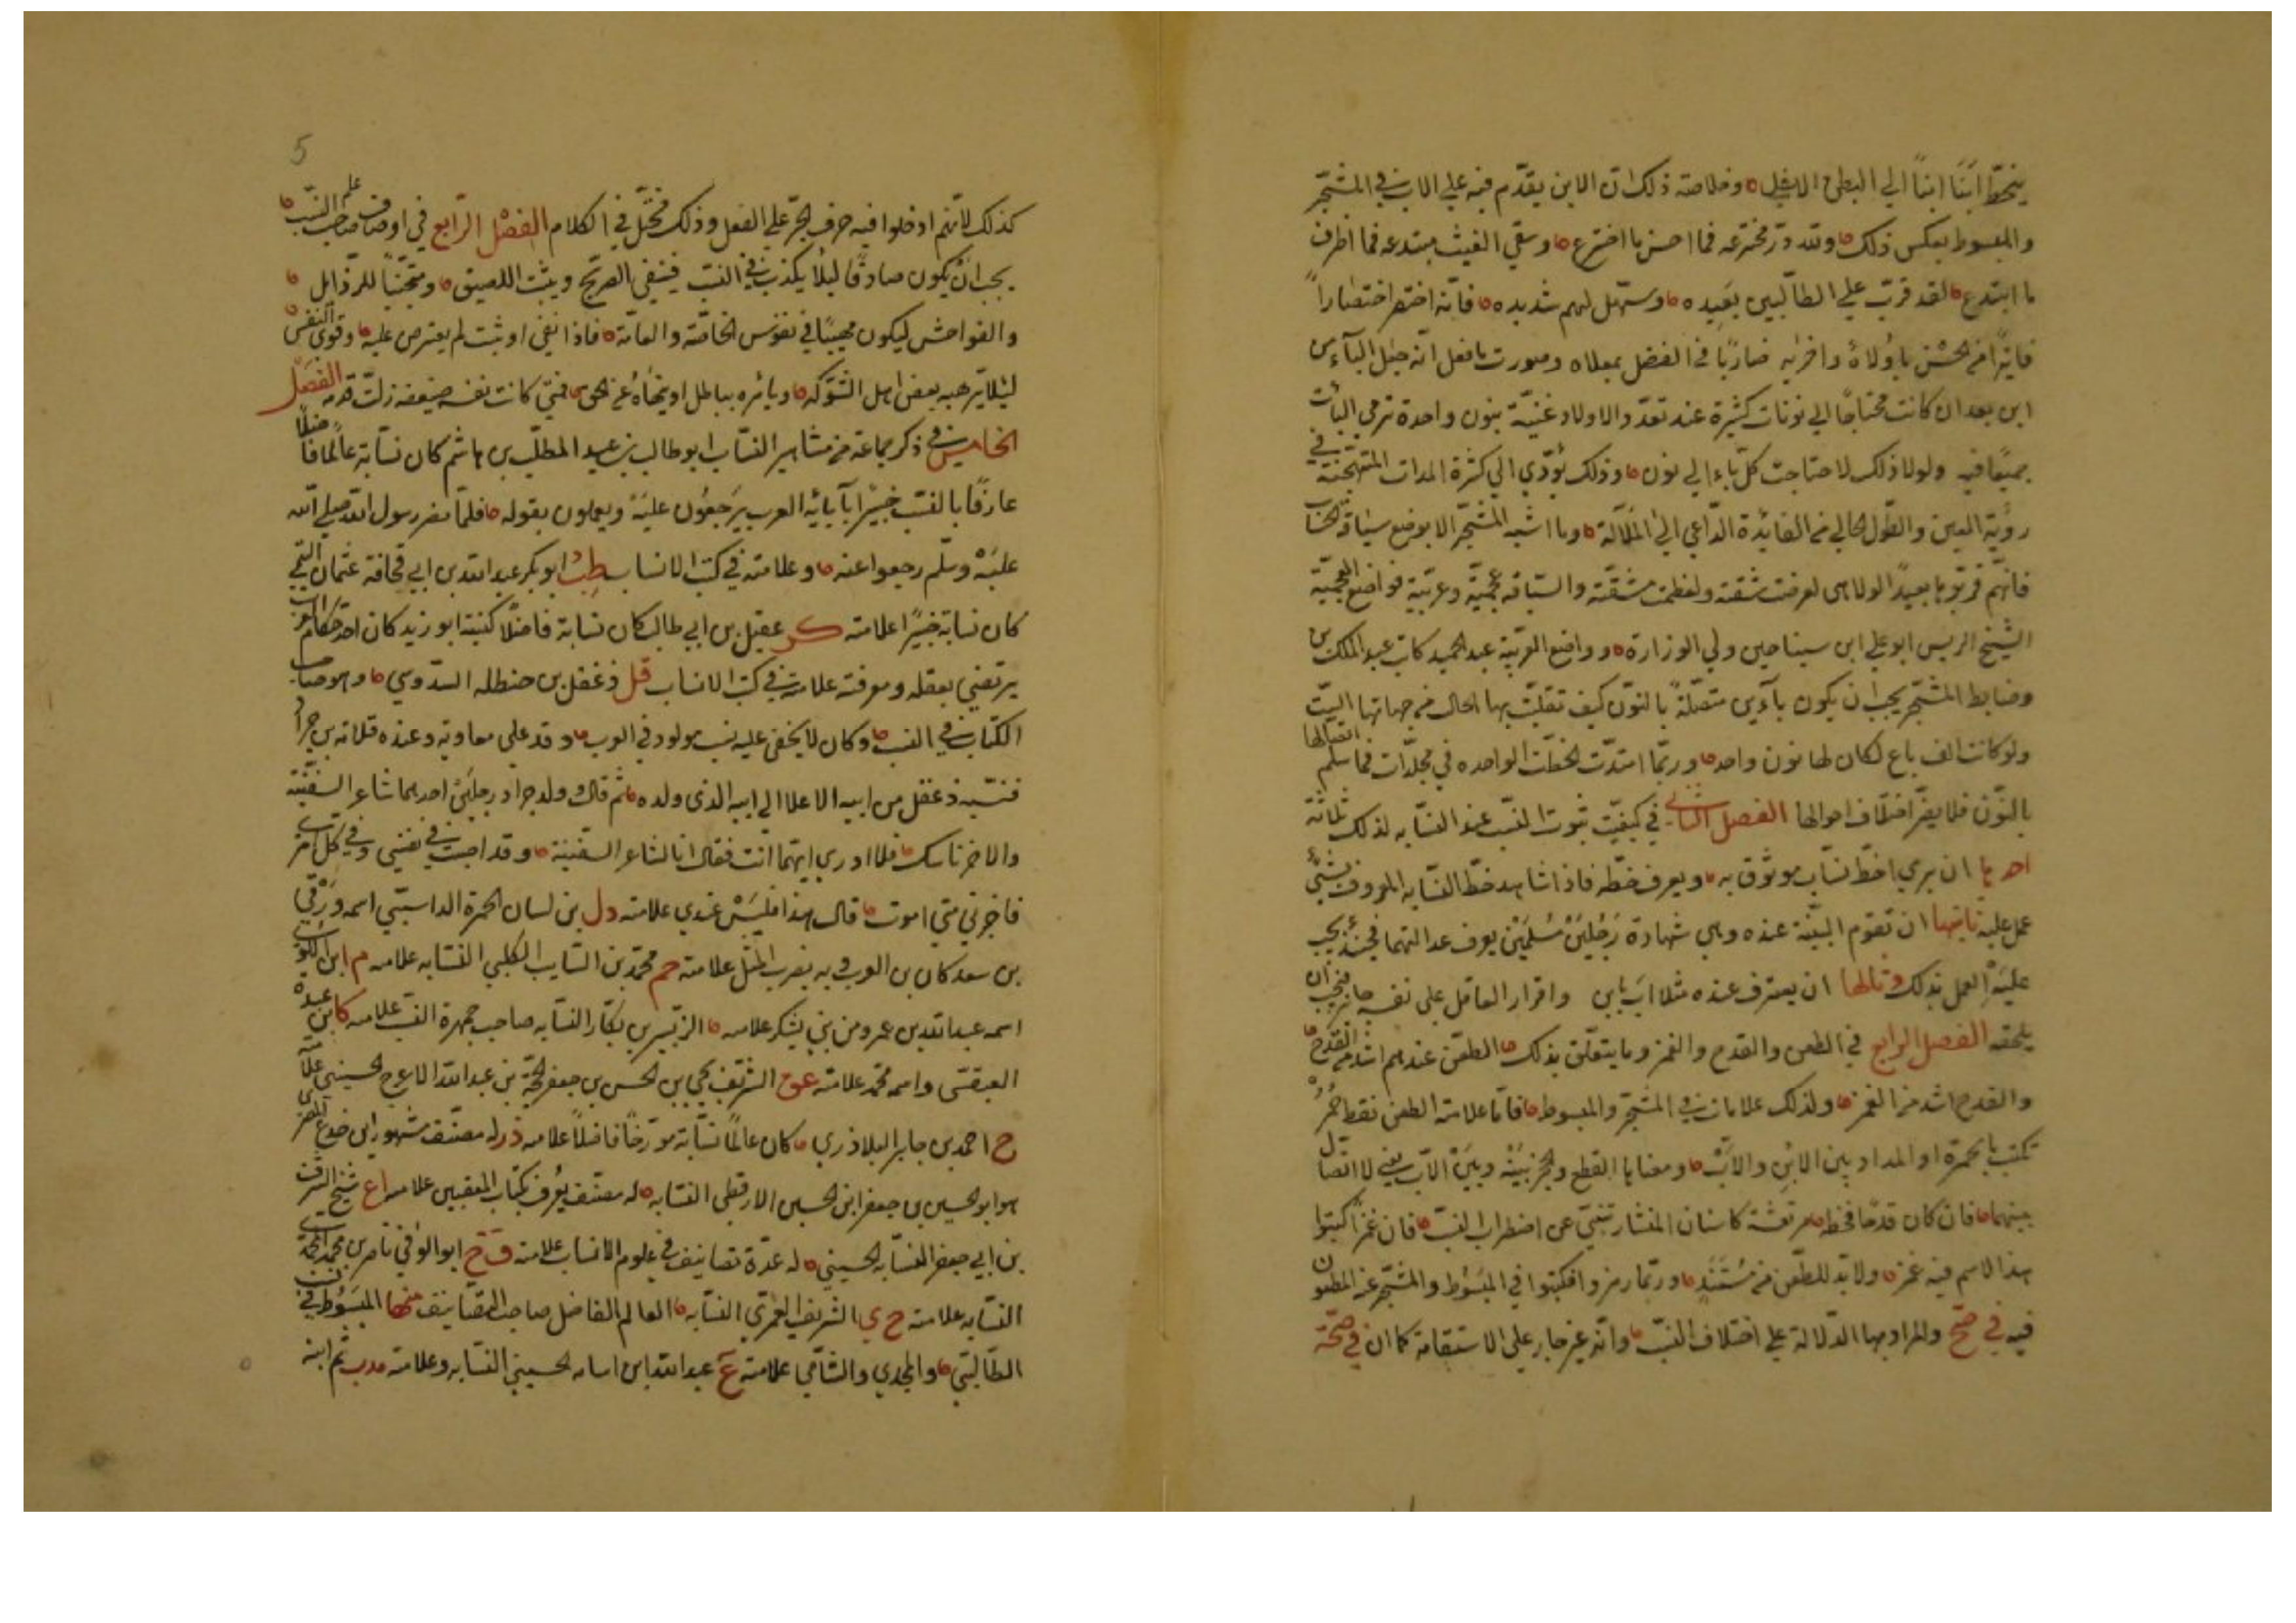 ينحطّ ابنًا ابنًا الي البطن الاسفل وخلاصة ذلك ان الابن يقدّم فيه علي الاب في المشجّر
والمبسوط بعكس ذلك ولله درّ مخترعه فما احسن ما اخترع وسقي الغيث مبتدعه فما اظرف
ما ابتدع لقد قرّب علي الطالبين بعيده وسهّل لهم شديده فانّه اختصر اختصاراً
فايزًا من الحسن باولاه واخراه ضاربًا في الفضل بمعلاه وصورت ما فعل انه جعل الباء من
ابن بعد ان كانت محتاجًا الي نونات كثيرة عند تعدّد الاولاد غنيّة بنون واحدة ترمي الباآت
جميعًا فيه ولولا ذلك لاحتاجت كلّ باء الي نون وذلك يؤدّي الي كثرة المدات المستهجنة في
رؤية العين والطّول الخالي من الفائدة الداعي الي الملالة وما اشبه المشجّر الا بوضع سياقة الحساب
فانهم قرّبوا بها بعيدًا لولا هي لعرضت شقته ولعظمت مشقته والسياقه عجميّة وعربيّة فواضع العجميّة
الشيخ الريس ابو علي ابن سينا حين ولي الوزارة وواضع العربيّة عبد الحميد كاتب عبد الملك بن
وضابط المشجّر يجب ان يكون باآبن متصلةً بالنون كيف تقلّبت بها الحال في جهاتها الستّ
ولو كانت الف باع لكان لها نون واحد وربّما امتدّت الخطّت الواحده في مجلّدات فما سلم اتصالها
بالنّون فلا يضرّ اختلاف احوالها الفصل الثالث في كيفيّت ثبوت النسب عند النسّابه لذلك ثلاثة
احدها ان يري خطّ نسّاب موثوق به ويعرف خطّه فاذا شاهد خطّ النسّابه المعروف بشئ
عمل عليه ثانيها ان تقوم البيّنة عنده وهي شهادة رَجُلين مُسلمين يعرف عدالتهما فحينئذٍ يجب
عليه العمل بذلك وثالثها ان يعترف عنده مثلا اب بابن واقرار العاقل علي نفسه جايز فيجب ان
يلحقه الفصل الرابع في الطعن والقدح والغمز وما يتعلّق بذلك الطعن عندهم اشد من القدح
والقدح اشد من الغمز ولذلك علامات في المشجّر والمبسوط فامّا علامة الطعن نقط حُمر
تكتب بالحمرة او المداد بين الابن والاب ومعناها القطع والحجز بينه وبين الاب يعني لا اتصال
بينهما فان كان قدحًا فخط مرتعشة كاسنان المنشار تنبئ عن اضطراب النسب فان غمز كتبوا
هذا الاسم فيه غمز ولا بد للطعن من مستند وربّما رمزوا فكتبوا في المبسوط والمشجّر عن المطعون
فيه في صح والمراد بها الدّلالة علي اختلاف النسب وانّه غير جار علي الاستقامة كما ان في صحّة
5
كذلك لانهم ادخلوا فيه حرف الجرّ علي الفعل وذلك مختل في الكلام الفصل الرابع في اوصاف صاحب علم النسب
يجب ان يكون صادقًا ليلا يكذب في النسب فينفي الصريح ويثبت اللصيق ومتجنّبًا للرذايل
والفواحش ليكون مهيبًا في نفوس الخاصّة والعامّة فاذا نفي او ثبت لم يعترض عليه وقوي النفس
ليلا يرهبه بعض اهل الشوكه ويأمره بباطل او ينهاه عن الحق فمتي كانت نفسه ضعيفه زلّت قدمه الفصل
الخامس في ذكر جماعة من مشاهير النسّاب ابو طالب بن عبد المطلّب بن هاشم كان نسّابة عالمًا فاضلًا
عارفًا بالنسب خبيرًا بآبائه العرب يرجعون عليه ويعملون بقوله فلمّا نفر رسول الله صلي الله
عليه وسلّم رجعوا عنه وعلامته في كتب الانساب طب ابو بكر عبد الله بن ابي قحافة عثمان التيمي
كان نسابة خبيرًا علامته كر عقيل بن ابي طالب كان نسابة فاضلًا كنيته ابو زيد كان احد حكام العرب
يرتضي بعقله ومعرفته علامته في كتب الانساب قل دغفل بن حنظله السدوسي وهو صاحب
الكتاب في النسب وكان لا يخفي عليه نسب مولود في العرب وفد علي معاويه وعنده قلانه بن جراد
فنسبه دغفل من ابيه الاعلا الي ابيه الذي ولده ثم قال ولد جراد رجلين احدهما شاعر السفينة
والاخر ناسك فلا ادري ايهما انت فقال انا شاعر السفينة وقد اصبت في نفسي وفي كل امر
فاخبرني متي اموت قال هذا فليس عندي علامته دل بن لسان الحمرة الداسبّي اسمه ورقي
بن سعد كان من العرب وبه يضرب المثل علامته حم محمّد بن السايب الكلبي النسّابه علامه م ابن الكوا
اسمه عبد الله بن عمرو من بني يشكر علامه الزبير بن بكّار النسّابه صاحب جمهرة النسب علامه كا ابن عبده
العبقسي واسمه محمد علامته عوق الشريف يحيي بن الحسن بن جعفر الحجّة بن عبد الله الاعرج الحسيني
ح احمد بن جابر البلاذري كان عالمًا نسّابة مورّخًا فاضلًا علامه ذر له مصنّف مشهور ابن خداع المصري
هو ابو الحسين بن جعفر ابن الحسين الارقطي النسّابه له مصنّف يُعرف بكتاب المعقبين علامه اع شيخ الشرف
بن ابي جعفر النسّابه الحسيني له عدّة تصانيف في علوم الانساب علامته ق ح ابو الوفي ناصر بن محمد
النسّابه علامته ح ي الشريف العمري النسّابه العالم الفاضل صاحب التصانيف منها المبسوط في نسب
الطالبيّ والمجدي والشافي علامته ع عبد الله ابن اسامه الحسيني النسّابه وعلامته مدب ثم ابنه